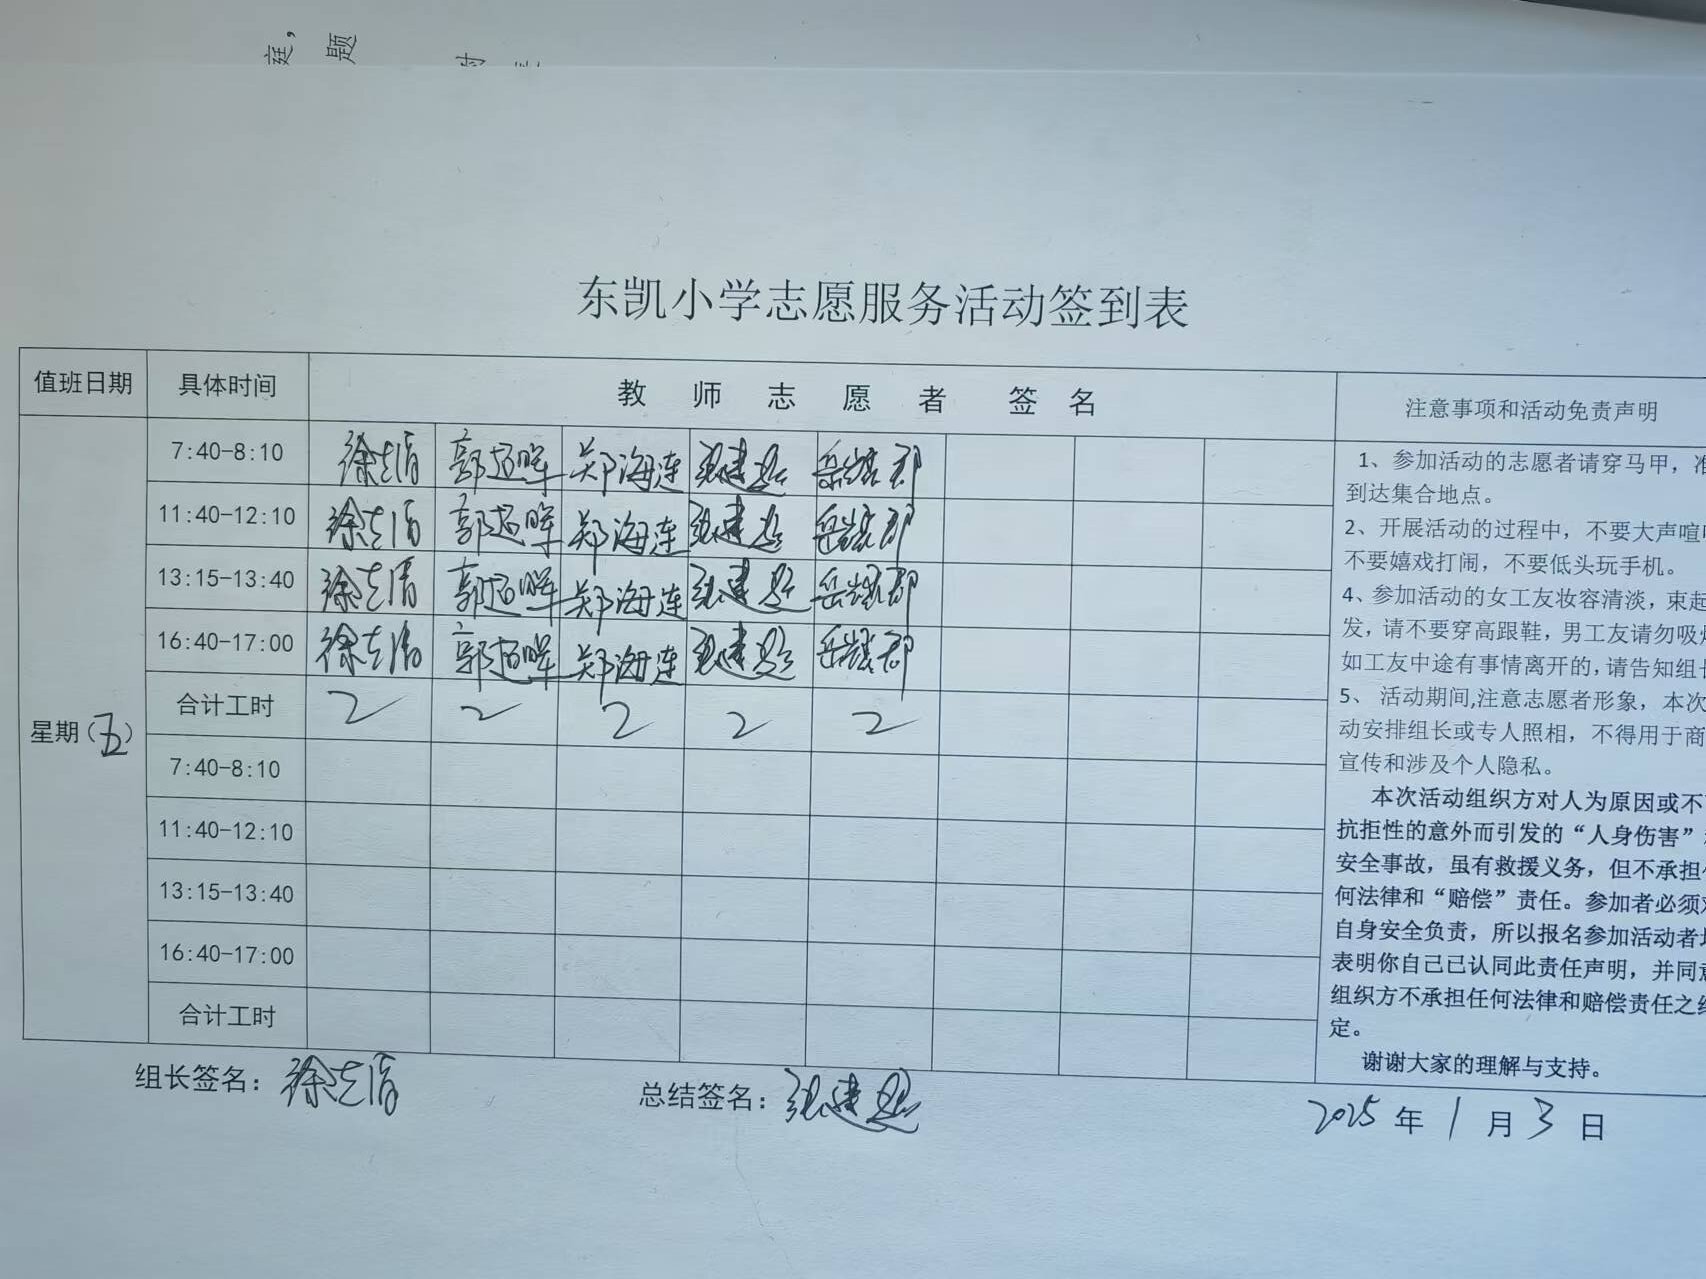 庭，
题
东凯小学志愿服务活动签到表
值班日期 具体时间 教师志愿者签名 注意事项和活动免责声明
7:40-8:10 徐志清 郭超晖 郑海连 张建超 岳凯郡
11:40-12:10 徐志清 郭超晖 郑海连 张建超 岳凯郡
13:15-13:40 徐志清 郭超晖 郑海连 张建超 岳凯郡
16:40-17:00 徐志清 郭超晖 郑海连 张建超 岳凯郡
合计工时 2 2 2 2 2
星期（五）
7:40-8:10
11:40-12:10
13:15-13:40
16:40-17:00
合计工时
1、参加活动的志愿者请穿马甲，准
到达集合地点。
2、开展活动的过程中，不要大声喧
不要嬉戏打闹，不要低头玩手机。
4、参加活动的女工友妆容清淡，束起
发，请不要穿高跟鞋，男工友请勿吸
如工友中途有事情离开的，请告知组
5、 活动期间,注意志愿者形象，本次
动安排组长或专人照相，不得用于商
宣传和涉及个人隐私。
本次活动组织方对人为原因或不
抗拒性的意外而引发的“人身伤害”
安全事故，虽有救援义务，但不承担
何法律和“赔偿”责任。参加者必须
自身安全负责，所以报名参加活动者
表明你自己已认同此责任声明，并同意
组织方不承担任何法律和赔偿责任之
定。
谢谢大家的理解与支持。
组长签名：徐志清 总结签名：张建超
2025年1月3日